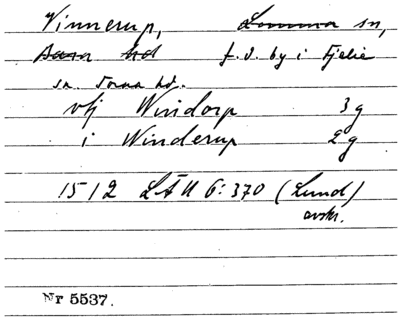 Vinnerup, Lomma sn,
Bara hd f.d. by i Fjelie
sn. Torna hd.
vtj Windorp 3g
i Winderup 2g
1512 LÄU 6:370 (Lund)
avskr.
Nr 5537.